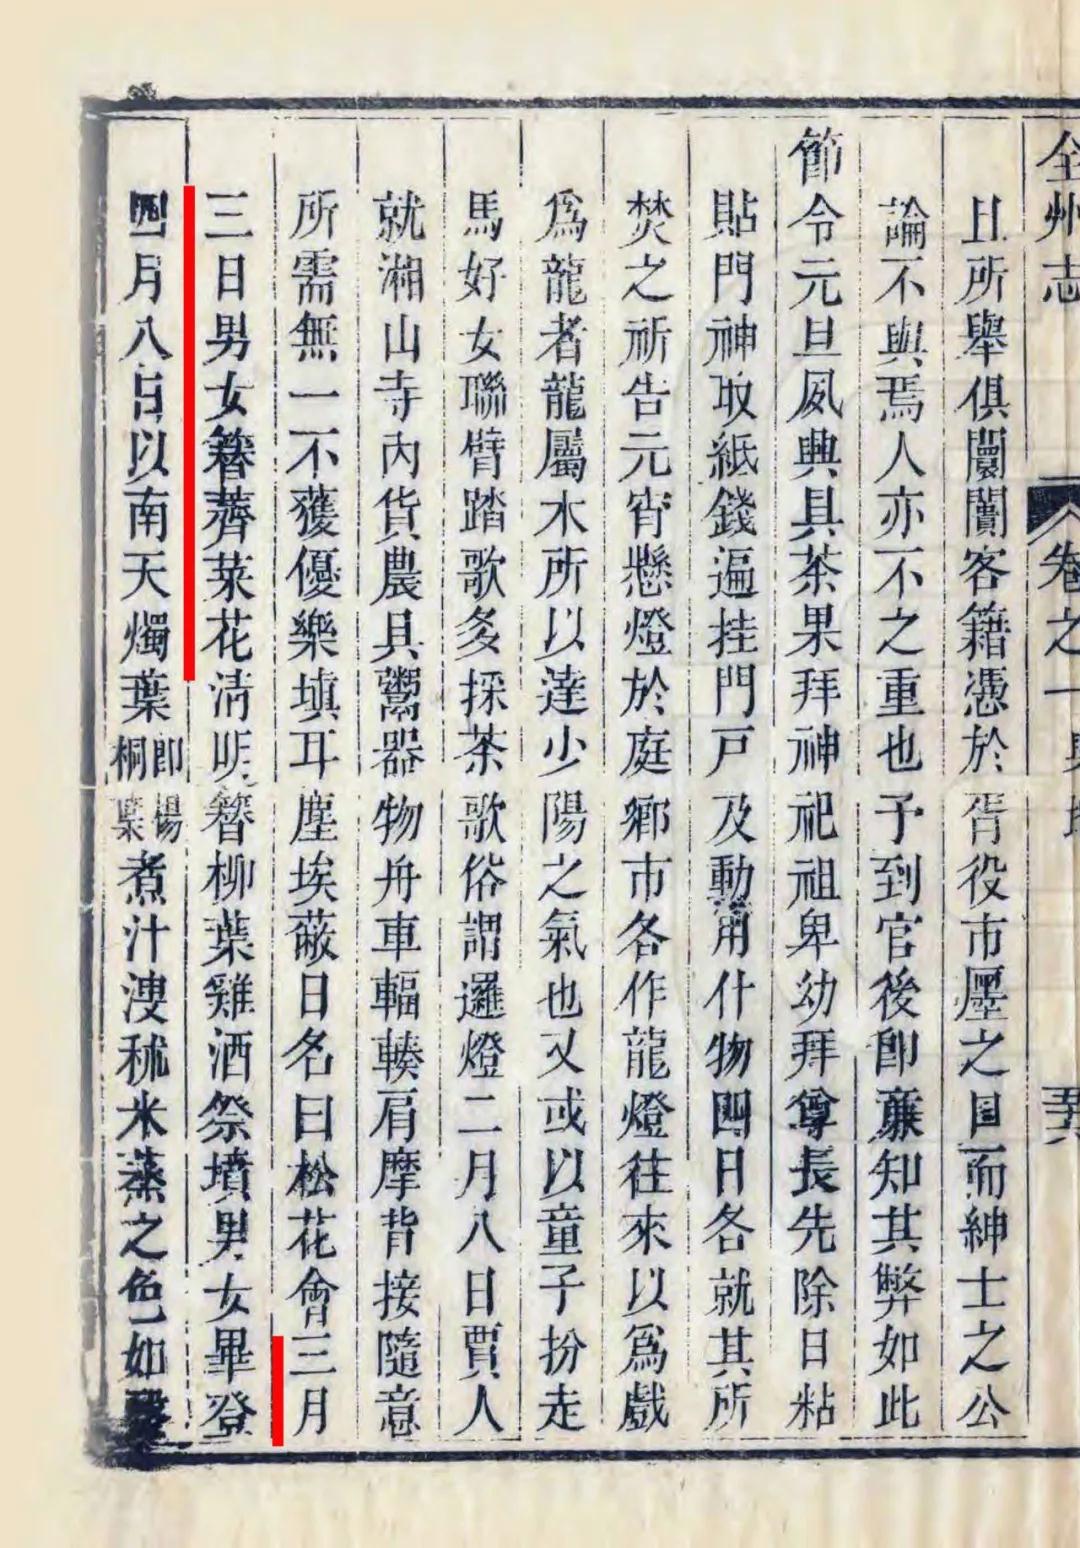 全州志 卷之一
且所舉俱闤闠客籍憑於胥役市㕓之目而紳士之公
論不與焉人亦不之重也予到官後即亷知其弊如此
節令元旦夙興具茶果拜神祀祖卑幼拜尊長先除日粘
貼門神取紙錢遍挂門戸及動用什物四日各就其所
焚之祈告元宵懸燈於庭鄉市各作龍燈往來以爲戲
爲龍者龍屬木所以達少陽之氣也又或以童子扮走
馬好女聯臂踏歌多採茶歌俗謂邏燈二月八日賈人
就湘山寺内貨農具鬻器物舟車輻輳肩摩背接隨意
所需無一不獲優樂塡耳塵埃蔽日名曰松花會三月
三日男女簪薺菜花淸明簪柳葉雞酒祭墳男女畢登
四月八日以南天燭葉即楊桐葉煮汁溲秫米蒸之色如